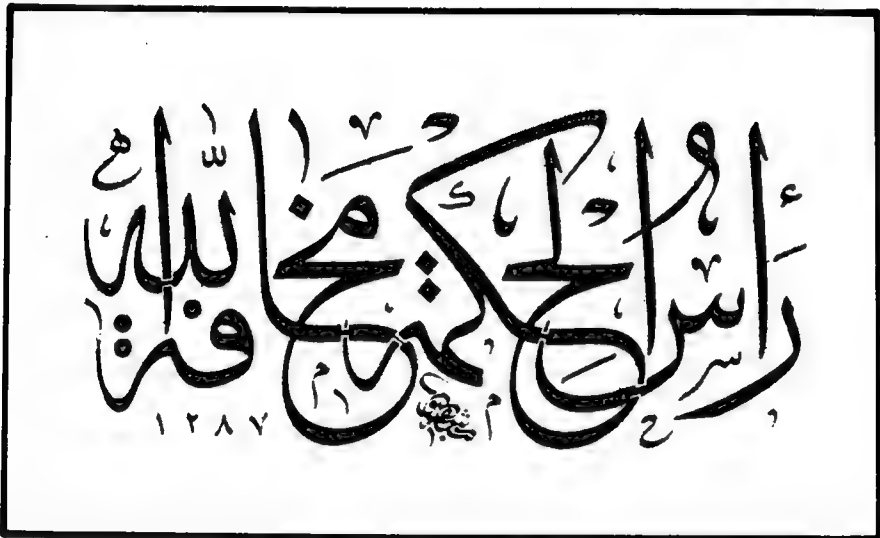 رَأْسُ الحِكْمَةِ مَخَافَةُ اللّٰهِ
١٢٨٧